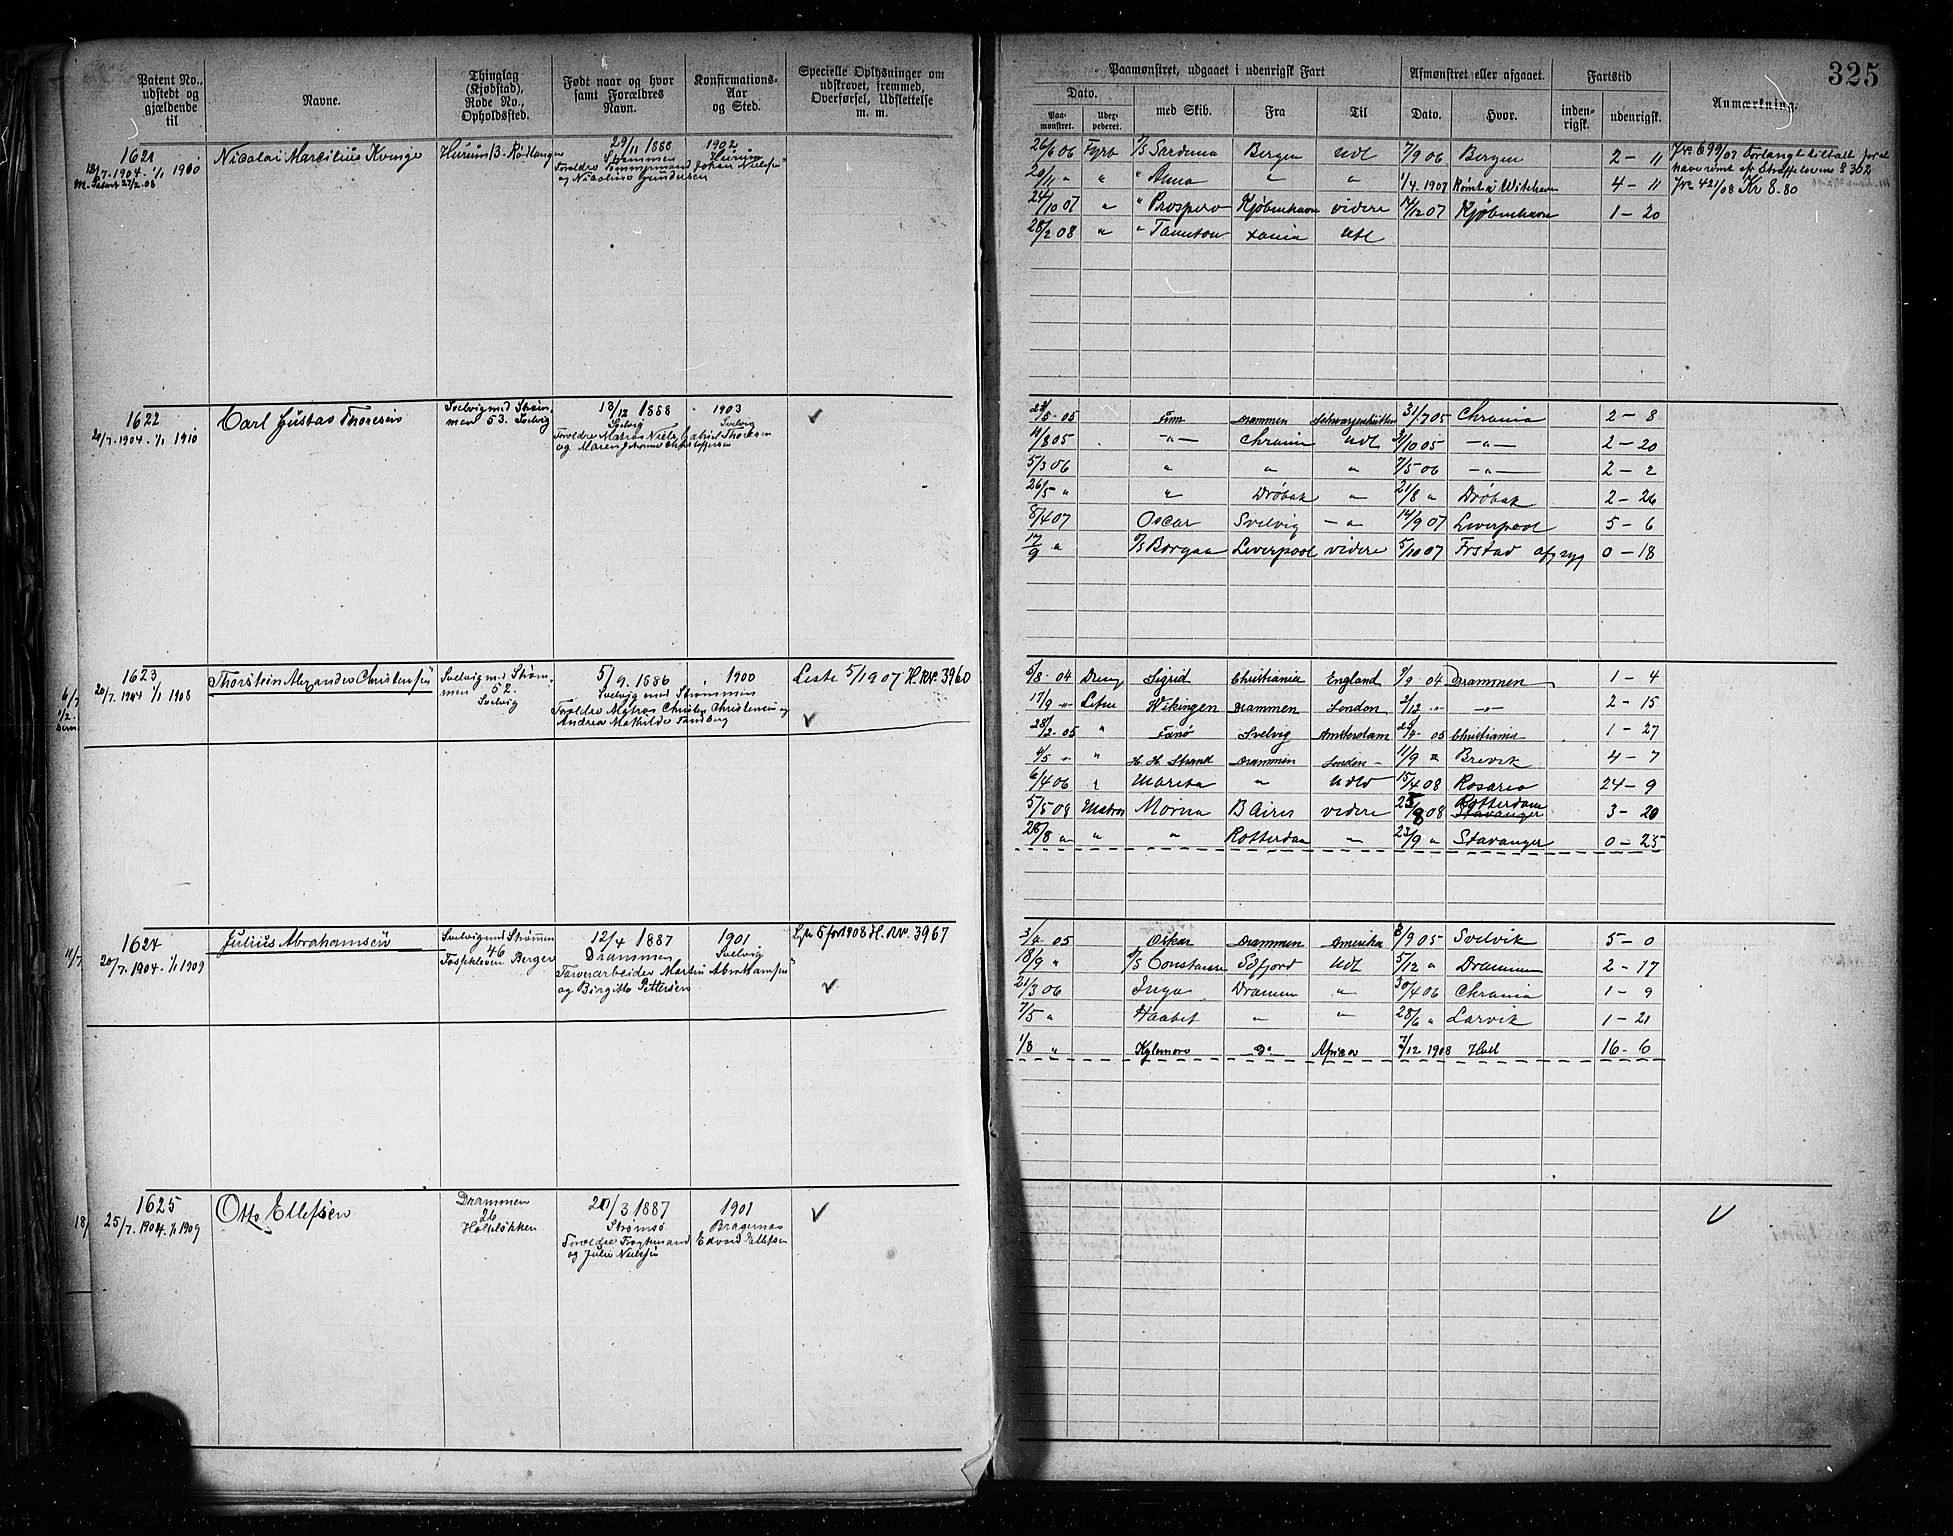 325
Patent No., udstedt og gjældende til
Navne.
Thinglag (Kjøbstad), Rode No., Opholdssted.
Født naar og hvor samt Forældres Navn.
Konfirmations-Aar og Sted.
Specielle Oplysninger om udskrevet, fremmed, Overførsel, Udslettelse m. m.
Paamønstret, udgaaet i udenrigsk Fart
Afmønstret eller afgaaet.
Fartstid
Anmærkning.
Dato.
Paa-mønstret.
med Skib.
Fra
Til
Dato.
Hvor.
inden-rigsk.
udenrigsk.
1621
Nicolai Marcilius
Hurum 13. Rødtangen
29/11 1888
1902
Hurum
og Nicoline Gundersen
26/6 06 Fyrb Bergen Udl 7/9 06 Bergen 2 - 11
20/11 " " " Anna " " 1/4 1907 4 - 11
24/10 07 " " Prospero Kjøbenhavn videre 17/12 07 Kjøbenhavn 1 - 20
28/2 08 " " Xania Udl
Jvs 421/08 Kr 8.80
1622
20/7 1904 - 1/1 1910
Carl Gustav Thoresen
Svelvig med Strøm-
men 53. Svelvig
13/12 1888
Svelvig
1903
Svelvig
Forældre Matros Niels Gabriel Thoresen
23/5 - 05 Drammen 31/7 05 Chrania 2 - 8
11/8 05 -"- Chrania Udl 31/10 05 -"- 2 - 20
5/3 06 " " " 7/5 06 -"- 2 - 2
26/5 " " Drøbak " 21/8 " Drøbak 2 - 26
8/4 07 Oscar Svelvig -"- 14/9 07 Liverpool 5 - 6
17/9 " D/S Borgaa Liverpool videre 5/10 07 Frstad 0 - 18
1623
20/7 1904 1/1 1908
Thorstein Alexander Christensen
Svelvig med Strøm-
men 52.
Svelvig
5/9. 1886
Svelvig med Strømmen
1900
Forældre Matros Christen Christensen og
Andrea Mathilde
Liste 5/1907 H. Nr. 3960
5/8 - 04 Dreng Sigrid Christiania England 9/9 04 Drammen 1 - 4
17/9 " Wikingen Drammen London 2/12 " -"- 2 - 15
28/2 - 05 " Fanø Svelvig Amsterdam 25/4 - 05 Christiania 1 - 27
4/5 " " H. H. Strand Drammen London - 11/9 " Brevik 4 - 7
6/4 06 " " Udld 15/4 08 Rosario 24 - 9
5/5 08 Matros B Aires videre 25/8 08 Rotterdam Stavanger 3 - 20
28/8 " " " Rotterdam - 23/9 " Stavanger 0 - 25
1624
20/7. 1904 - 1/1 1909
Julius Abrahamsen
Svelvig med Strømmen
46
Berger
12/4 1887
Drammen
1901
Svelvig
Martin Abrahamsen
og Birgitte Pettersen
5 for 1908 H. Nr. 3967
3/4 05 Oskar Drammen Amerika 3/9 05 Svelvik 5 - 0
18/9 " D/S Constanse Udl 5/12 " Drammen 2 - 17
21/3 06 Inga Drammen " 30/4 06 Chrania 1 - 9
7/5 " Haabet " " 28/6 " Larvik 1 - 21
1/8 " Kylemore Do Africa 7/12 1908 Hull 16 - 6
1625
25/7. 1904 - 1/1 1909
Otto Ellefsen
Drammen
26
20/3 1887
Strømsø
1901
Bragernes
Edvard Ellefsen
og Julie Nielsen